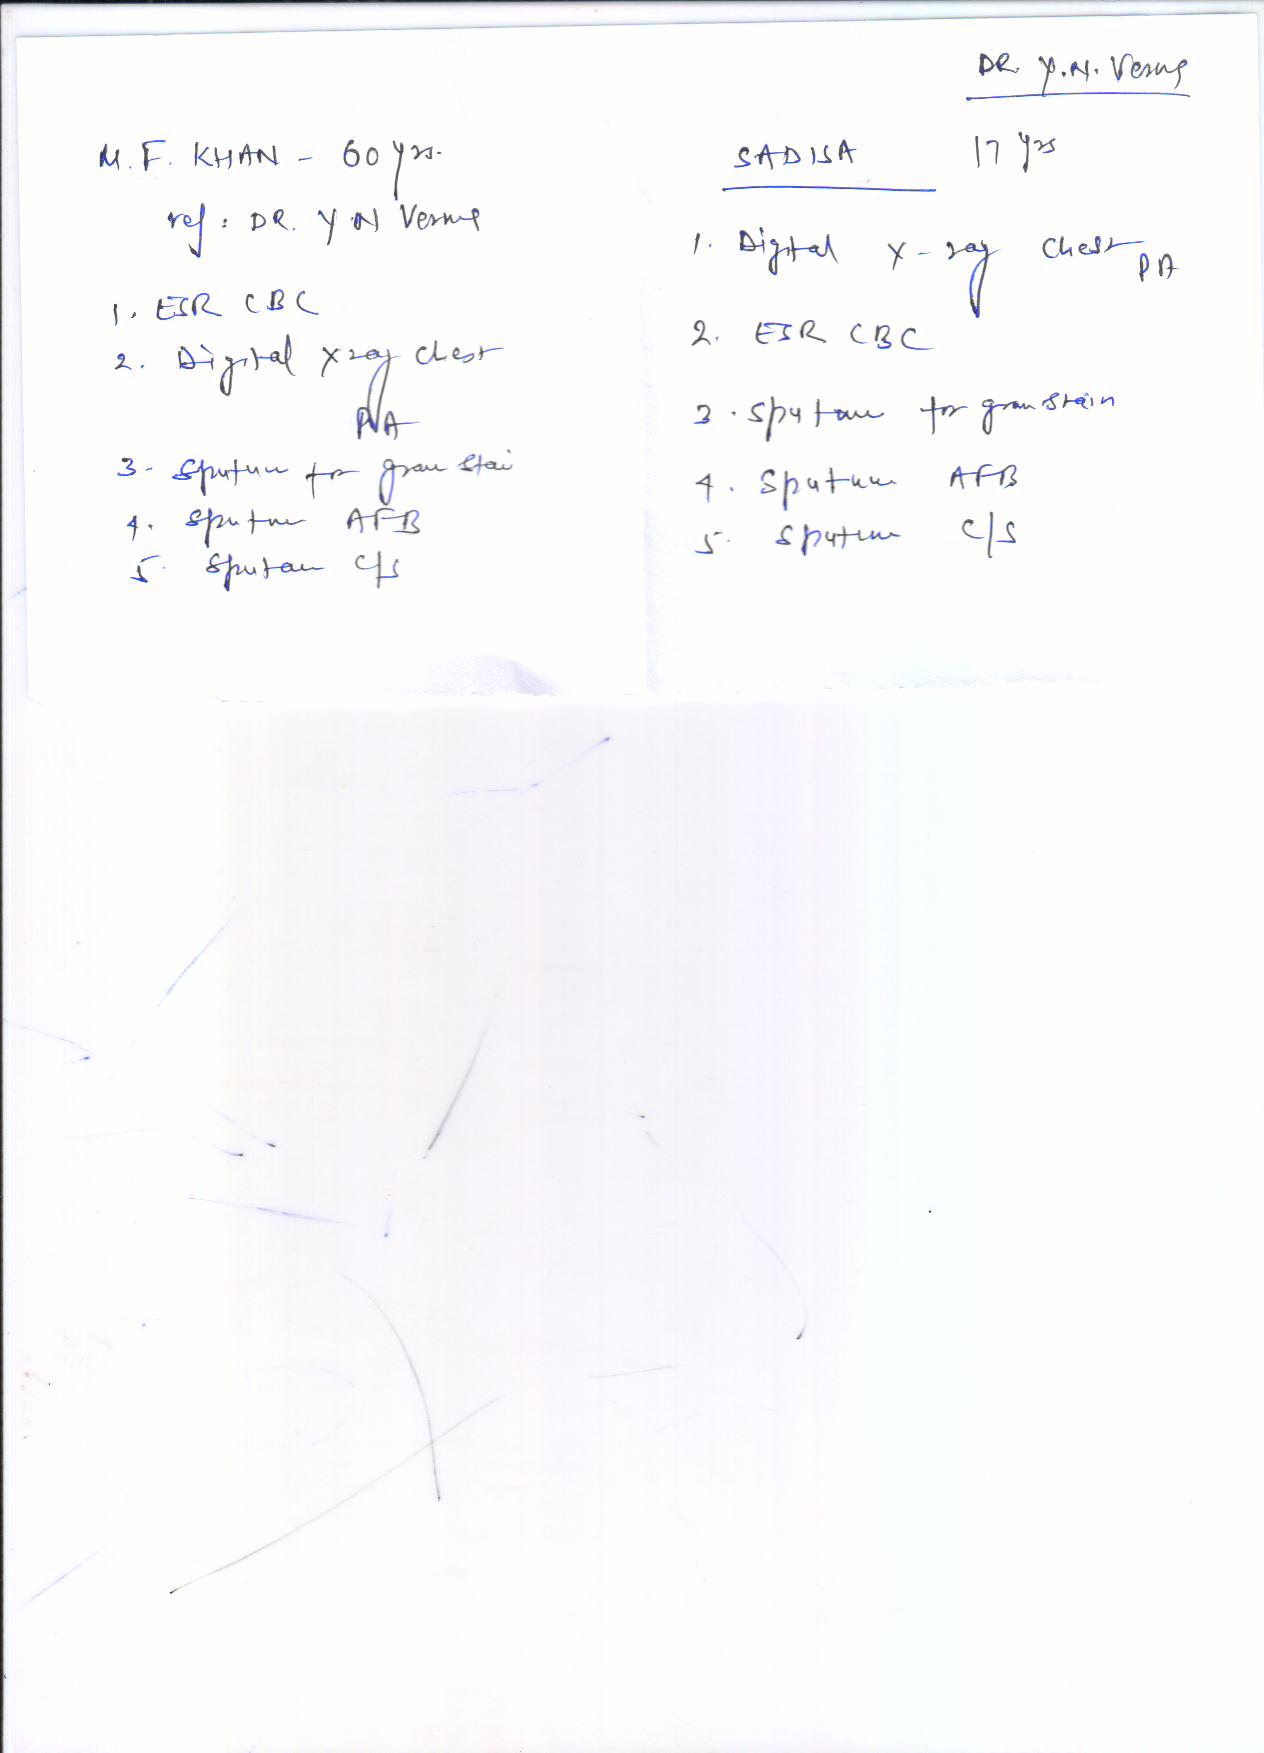 DR. Y.N. Verma
M. F. KHAN - 60 yrs.
ref: DR. Y N Verma
1. ESR CBC
2. Digital X ray Chest
P/A
3- Sputum for gram stai
4. Sputum AFB
5. Sputum C/S
SADISA 17 yrs
1. Digital X-ray Chest
PA
2. ESR CBC
3. Sputum for gram strain
4. Sputum AFB
5. Sputum C/S